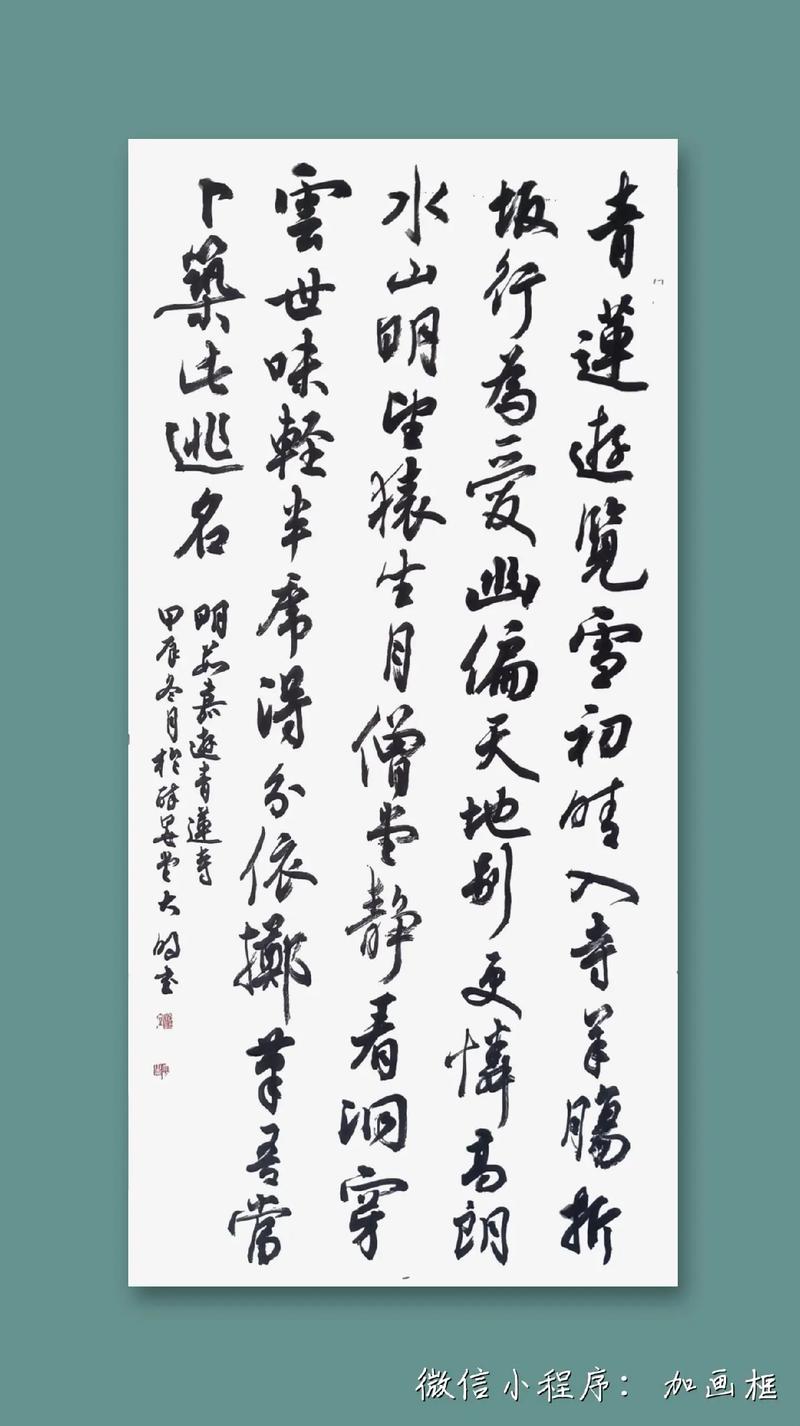 青蓮遊覽雪初晴入寺羊腸折
坂行為愛幽偏天地别更憐高朗
水山明望猿生月僧堂靜看洞穿
雲世味輕半席得分依擲筆吾當
卜築此逃名
明 嘉遊青蓮寺
甲辰冬月於 堂大 書
微信小程序：加画框